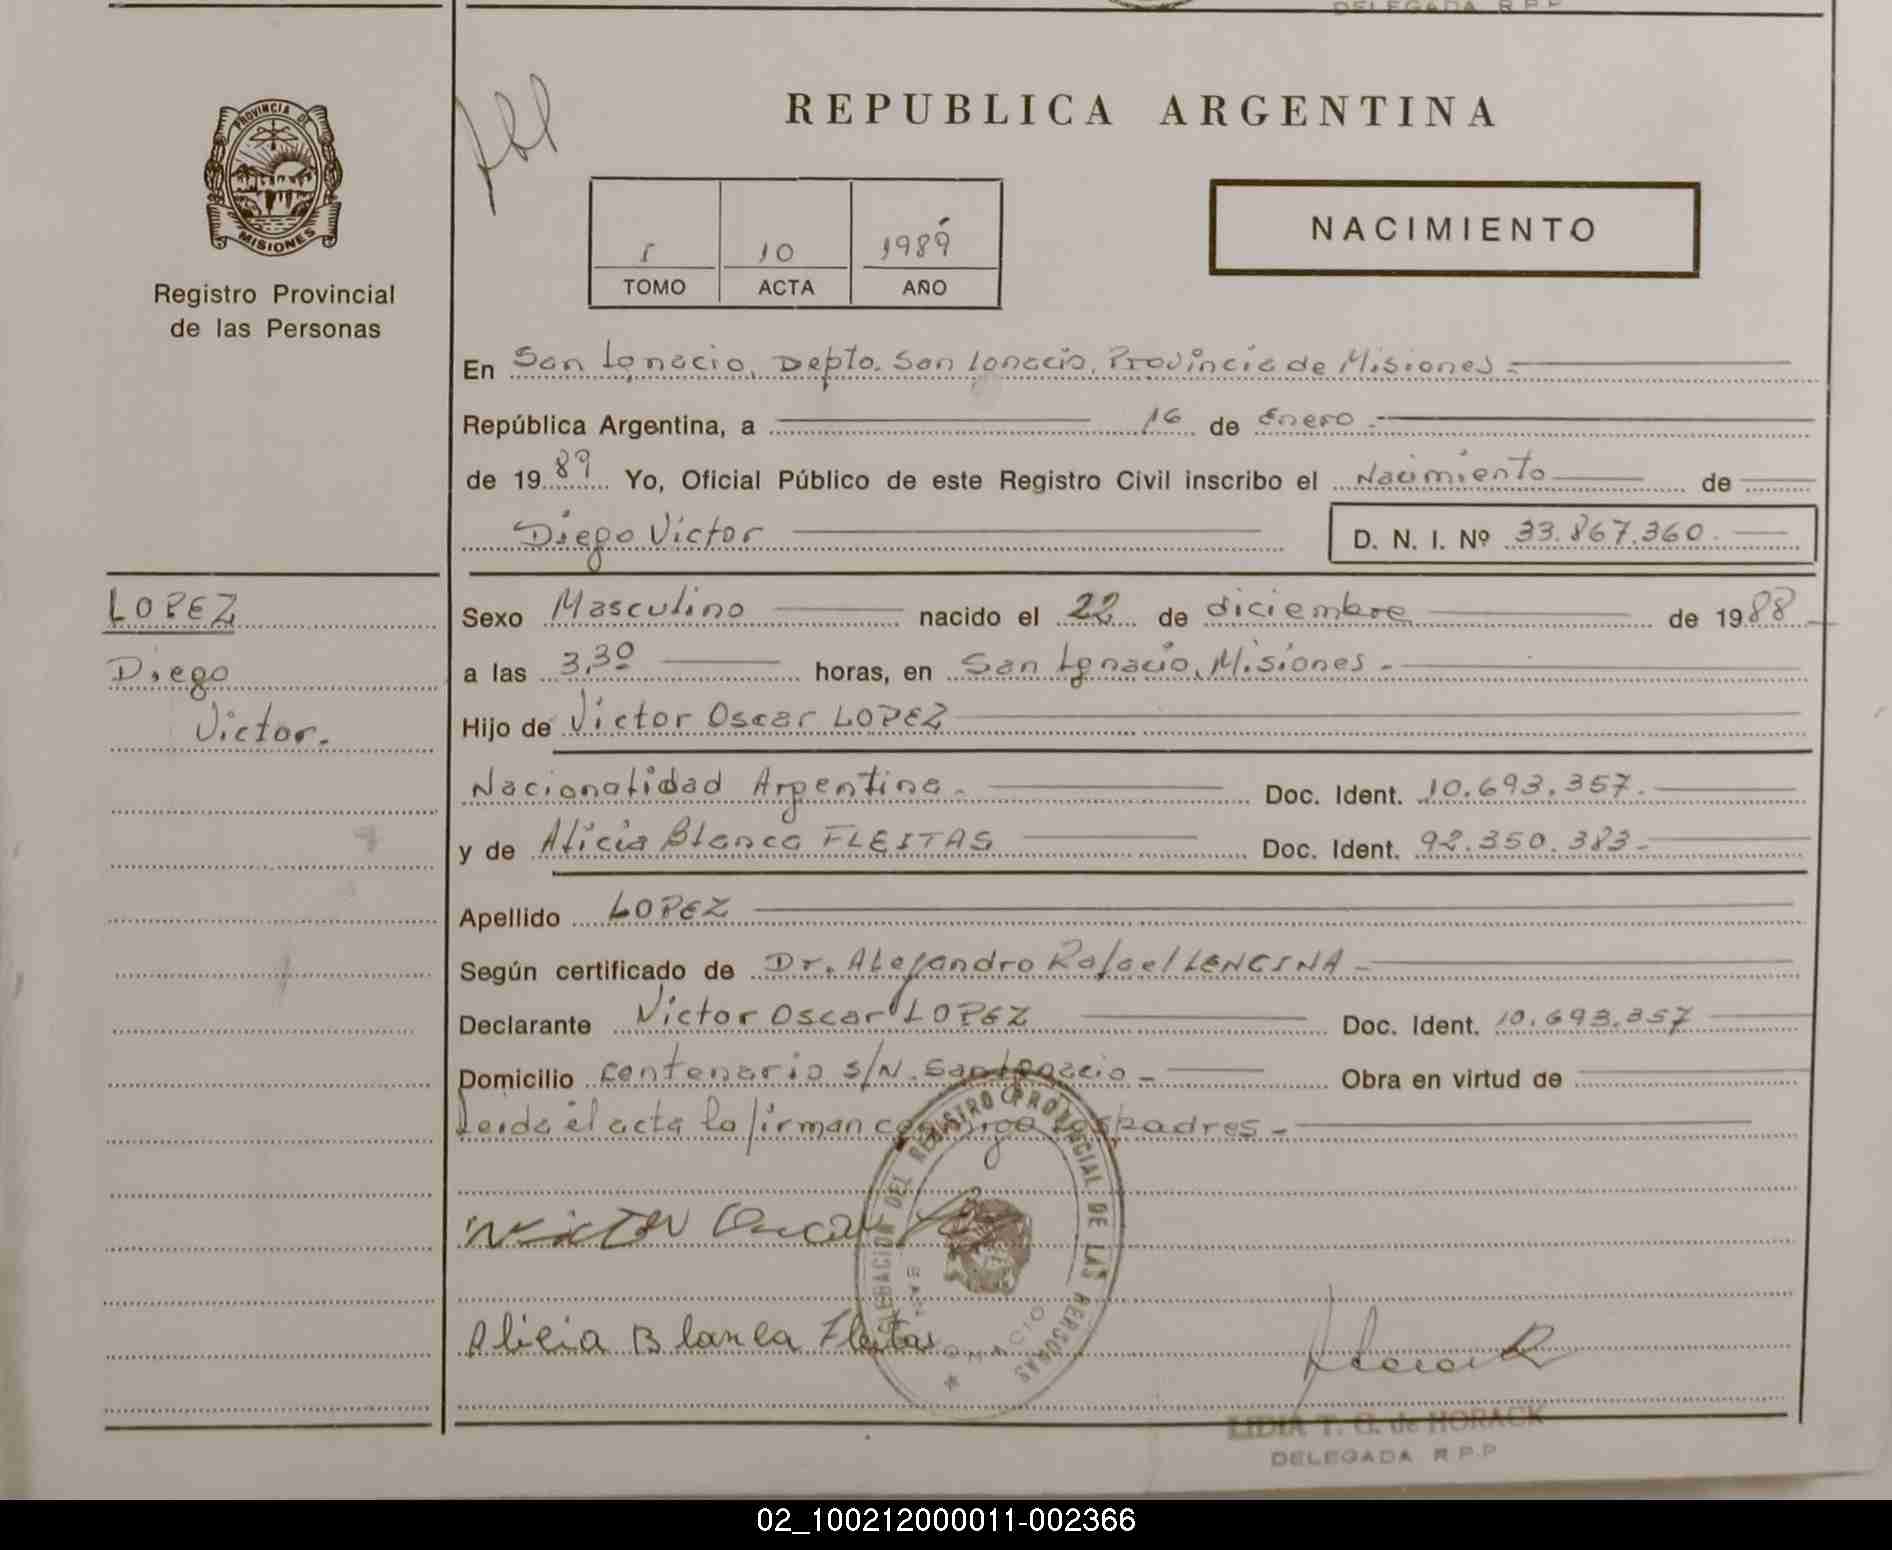 DELEGADA R.P.P
PROVINCIA DE
MISIONES
Registro Provincial
de las Personas
REPUBLICA ARGENTINA
I 10 1989
TOMO ACTA AÑO
NACIMIENTO
En San Ignacio, Depto. San Ignacio, Provincia de Misiones -
República Argentina, a 16 de Enero -
de 1989 Yo, Oficial Público de este Registro Civil inscribo el Nacimiento de
Diego Victor D. N. I. Nº 33.867.360.
LOPEZ
Diego
Victor.
Sexo Masculino nacido el 22 de diciembre de 1988
a las 3,30 horas, en San Ignacio, Misiones -
Hijo de Victor Oscar LOPEZ
Nacionalidad Argentina - Doc. Ident. 10.693.357.-
y de Alicia Blanca FLEITAS Doc. Ident. 92.350.383-
Apellido LOPEZ
Según certificado de Dr. Alejandro Rafael LENCINA -
Declarante Victor Oscar LOPEZ Doc. Ident. 10.693.357
Domicilio centenario s/N. San Ignacio - Obra en virtud de
Leida el acta la firman conmigo los padres -
Victor Oscar
Alicia Blanca Fleitas
DELEGACION DEL REGISTRO PROVINCIAL DE LAS PERSONAS
SAN IGNACIO
Horack
LIDIA T. G. de HORACK
DELEGADA R.P.P
02_100212000011-002366